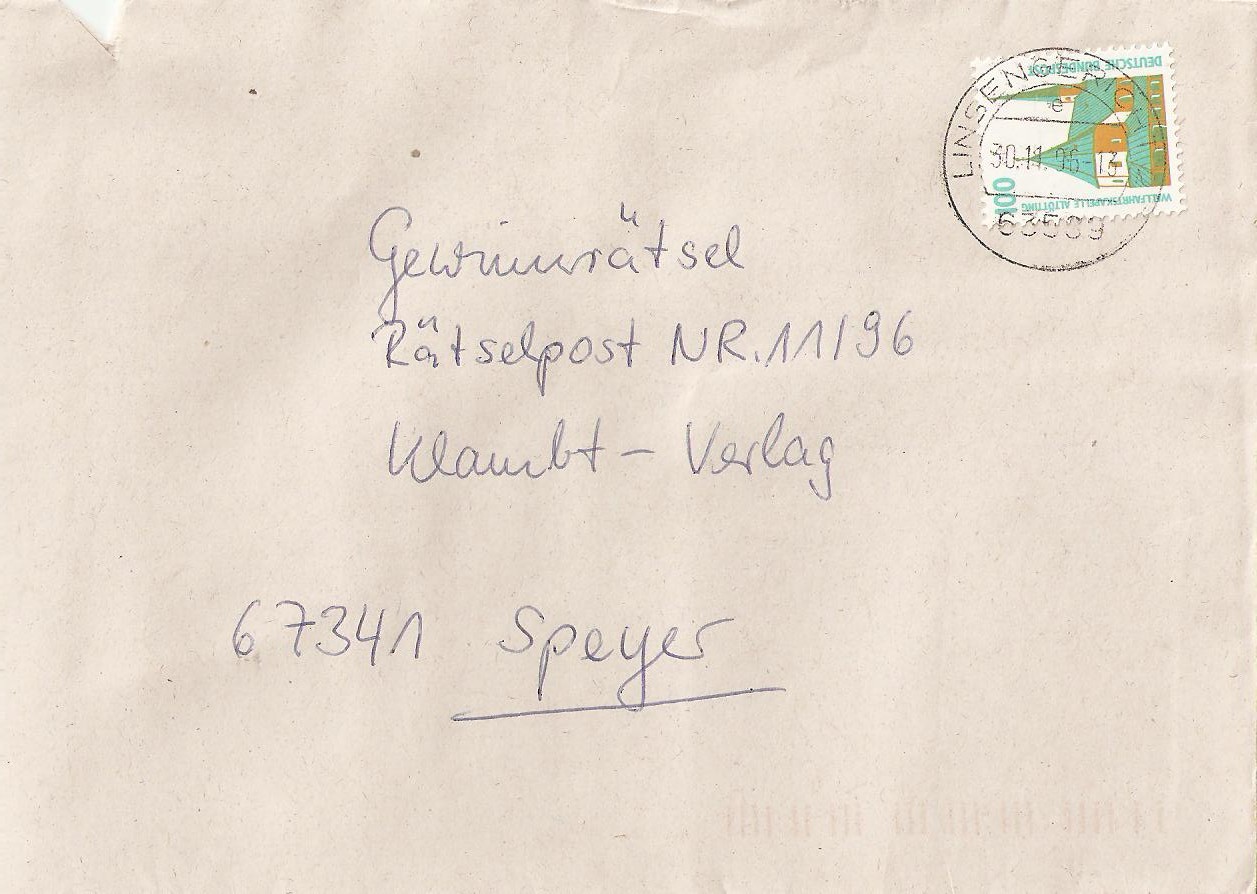 DEUTSCHE BUNDESPOST
LINSENGERICHT
e
30.11.96-13
100
WALLFAHRTSKAPELLE ALTÖTTING
63589
Gewinnrätsel
Rätselpost NR.11/96
Klambt - Verlag
67341 Speyer